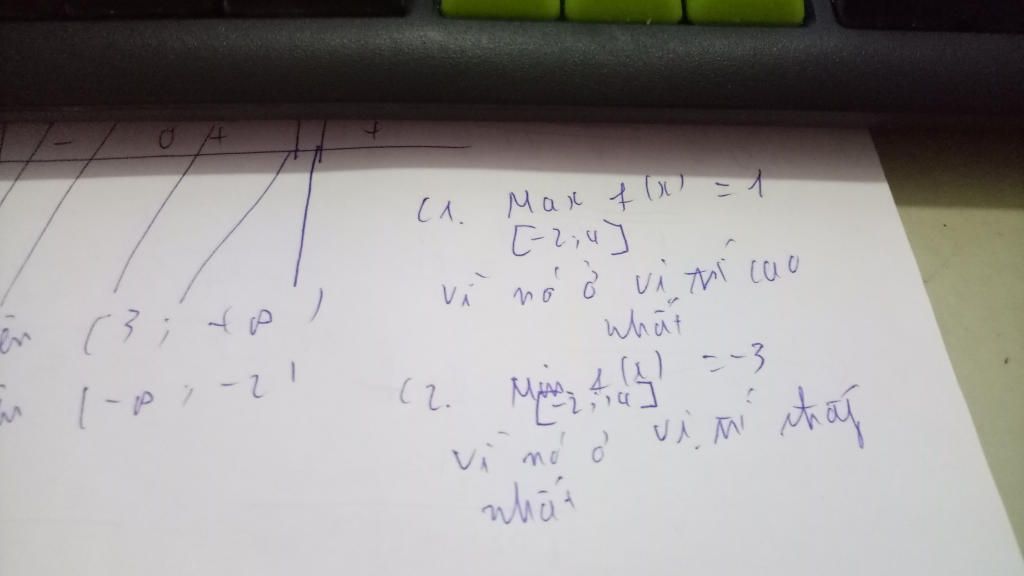 - 0 + +
C1. Max f(x) = 1
[-2;4]
vì nó ở vị trí cao
nhất
ên (3; +∞)
(-∞; -2)
C2. Min f(x) = -3
[-2;4]
vì nó ở vị trí thấp
nhất